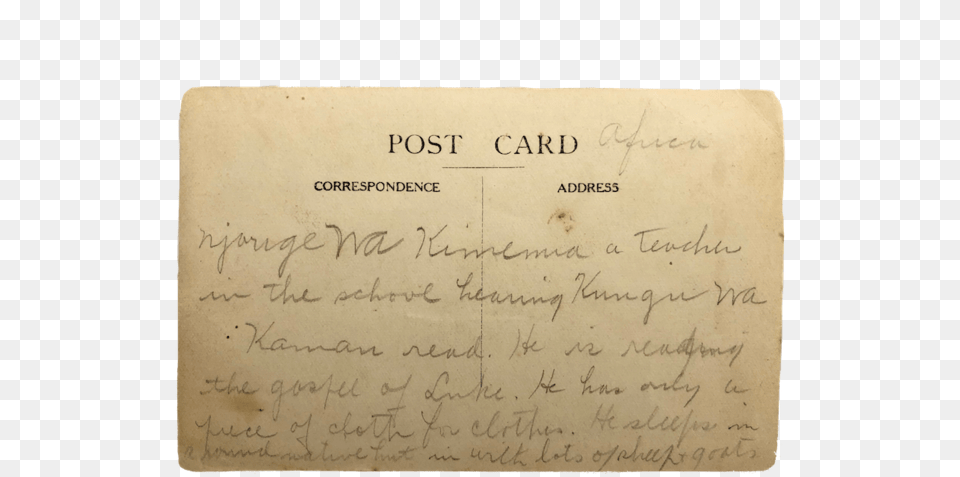 POST CARD Africa
CORRESPONDENCE ADDRESS
Njoruge Wa Kimemia a teacher
in the school hearing Kungu Wa
Kamau read. He is reading
the gospel of Luke. He has only a
piece of cloth for clothes. He sleeps in
a round native hut in with lots of sheep & goats